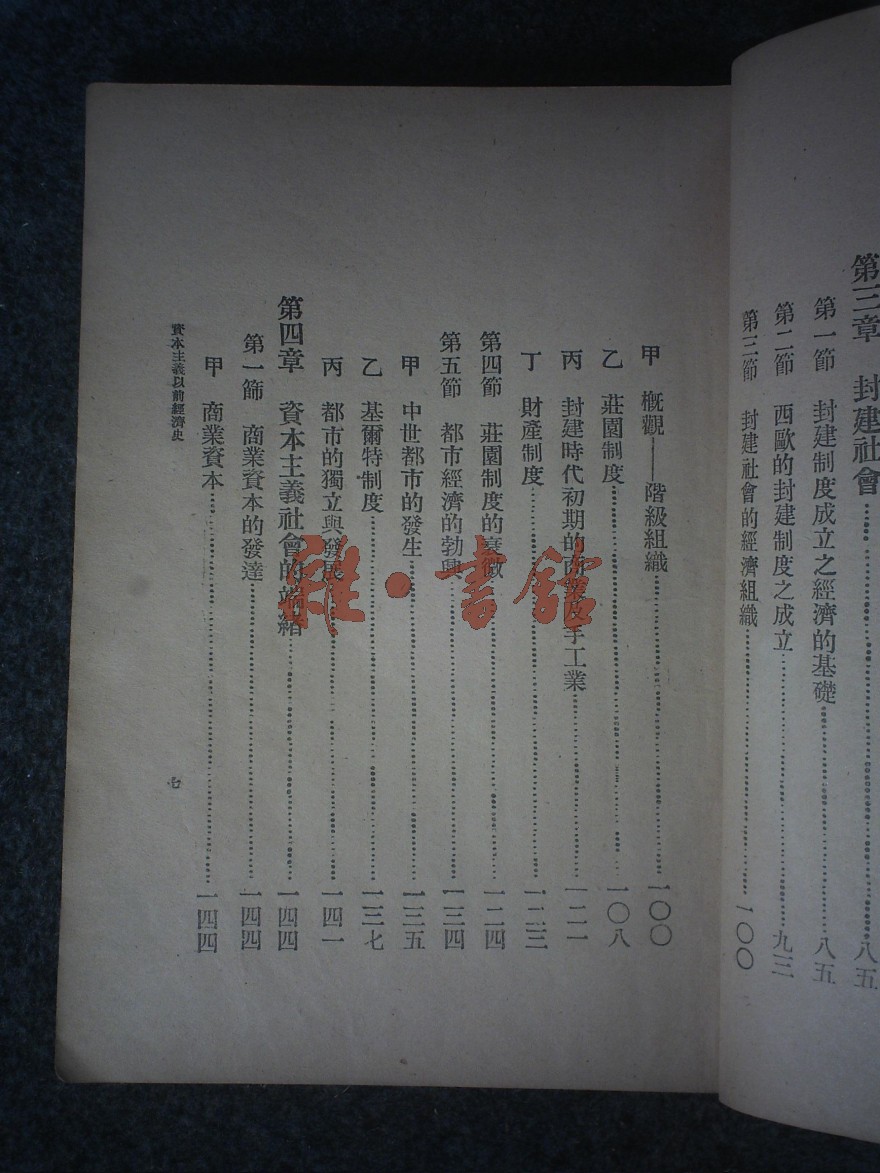 第三章 封建社會……八五
第一節 封建制度成立之經濟的基礎……八五
第二節 西歐的封建制度之成立……九三
第三節 封建社會的經濟組織……一〇〇
甲 概觀——階級組織……一〇〇
乙 莊園制度……一〇八
丙 封建時代初期的商業及手工業……一二一
丁 財產制度……一二三
第四節 莊園制度的衰微……一二四
第五節 都市經濟的勃興……一三四
甲 中世都市的發生……一三五
乙 基爾特制度……一三七
丙 都市的獨立與發展……一四一
第四章 資本主義社會的端緒……一四四
第一節 商業資本的發達……一四四
甲 商業資本……一四四
資本主義以前經濟史
雜·書館